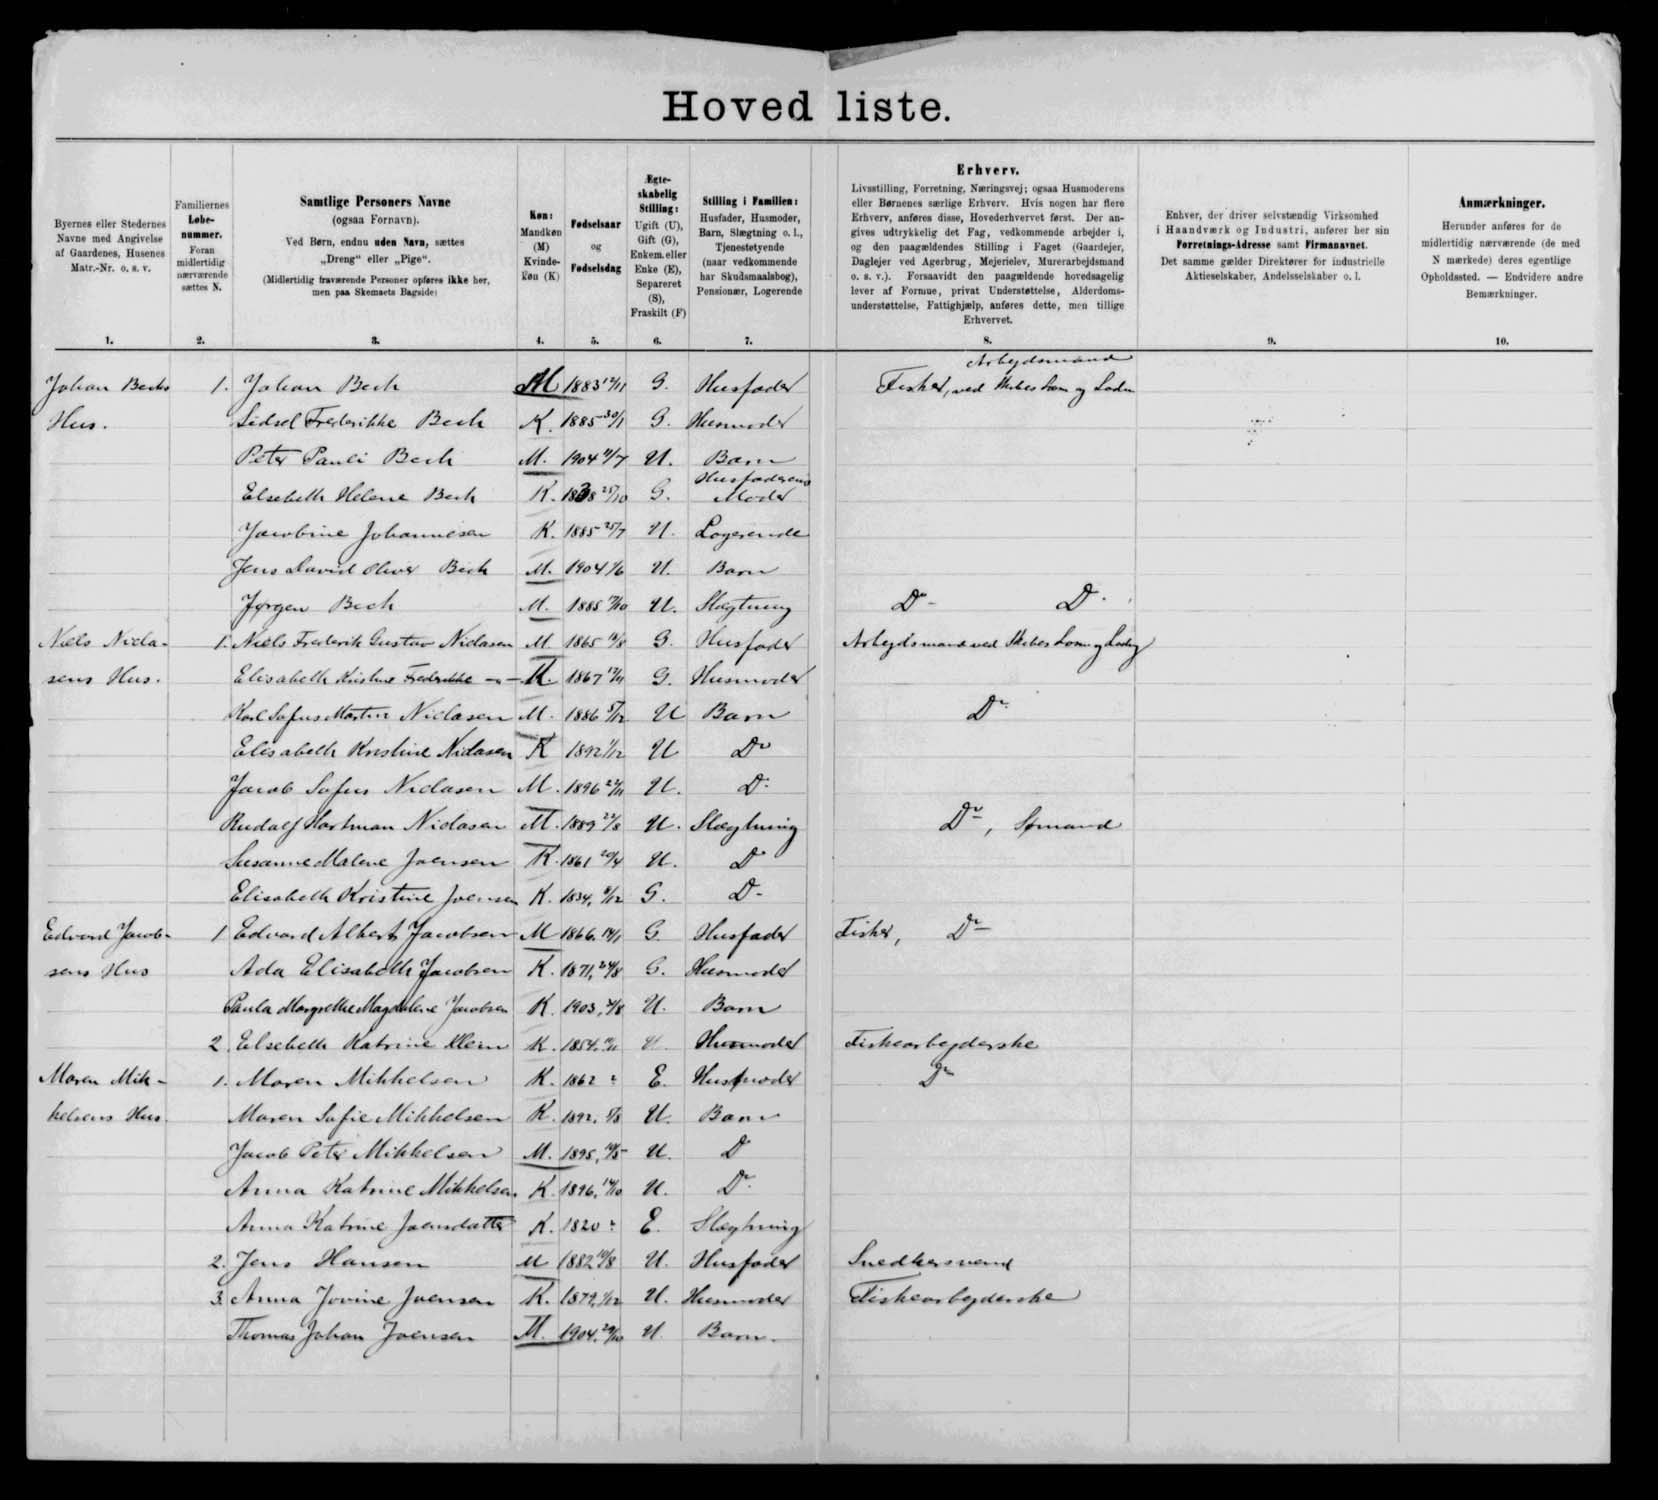 Hoved liste.
Byernes eller Stedernes Navne med Angivelse af Gaardenes, Husenes Matr.-Nr. o. s. v.
Familiernes Løbe-nummer. Foran midlertidig nærværende sættes N.
Samtlige Personers Navne (ogsaa Fornavn). Ved Børn, endnu uden Navn, sættes „Dreng" eller „Pige". (Midlertidig fraværende Personer opføres ikke her, men paa Skemaets Bagside)
Køn: Mandkøn (M) Kvinde-køn (K)
Fødselsaar og Fødselsdag
Ægte-skabelig Stilling: Ugift (U), Gift (G), Enkem. eller Enke (E), Separeret (S), Fraskilt (F)
Stilling i Familien: Husfader, Husmoder, Barn, Slægtning o. l., Tjenestetyende (naar vedkommende har Skudsmaalsbog), Pensionær, Logerende
Erhverv. Livsstilling, Forretning, Næringsvej; ogsaa Husmoderens eller Børnenes særlige Erhverv. Hvis nogen har flere Erhverv, anføres disse, Hovederhvervet først. Der angives udtrykkelig det Fag, vedkommende arbejder i, og den paagældendes Stilling i Faget (Gaardejer, Daglejer ved Agerbrug, Mejerielev, Murerarbejdsmand o. s. v.). Forsaavidt den paagældende hovedsagelig lever af Formue, privat Understøttelse, Alderdoms-understøttelse, Fattighjælp, anføres dette, men tillige Erhvervet.
Enhver, der driver selvstændig Virksomhed i Haandværk og Industri, anfører her sin Forretnings-Adresse samt Firmanavnet. Det samme gælder Direktører for industrielle Aktieselskaber, Andelsselskaber o. l.
Anmærkninger. Herunder anføres for de midlertidig nærværende (de med N mærkede) deres egentlige Opholdssted. — Endvidere andre Bemærkninger.
1. 2. 3. 4. 5. 6. 7. 8. 9. 10.
Arbejdsmand
Johan Bechs 1. Johan Bech M 1883 G. Husfader Fisker, ved Skibes Losn og Ladn
Hus. Sidsel Frederikke Bech K. 1885 30/1 G. Husmoder
Peter Pauli Bech M. 1904 U. Barn
Elsebeth Helene Bech K. 1838 25/10 G. Husfaderens Moder
Jacobine Johannesen K. 1885 25/7 U. Logerende
Jens David Oliver Bech M. 1904 U. Barn
Jørgen Bech M. 1885 U. Slægtning Do Do
Niels Nicla- 1. Niels Frederik Gustav Niclasen M. 1865 G. Husfader Arbejdsmand ved Skibes Losn og Ladng
sens Hus. Elisabeth Kristine Frederikke —"— K. 1867 G. Husmoder
Karl Sofus Martin Niclasen M. 1886 5/12 U Barn Do
Elisabeth Kristine Niclasen K 1892 1/12 U Do
Jacob Sofus Niclasen M. 1896 U. Do
Rudolf Hartman Niclasen M. 1889 22/8 U. Slægtning Do, Sømand
Susanne Malene Joensen K. 1861 20/4 U. Do
Elisabeth Kristine Joensen K. 1834, G. Do
Edvard Jacob- 1 Edvard Albert Jacobsen M 1866. G. Husfader Fisker, Do
sens Hus Ada Elisabeth Jacobsen K. 1871, 24/8 G. Husmoder
Paula Margrethe Magdalene Jacobsen K. 1903, U. Barn
2. Elsebeth Katrine Klein K. 1854. U Husmoder Fiskearbejderske
Maren Mik- 1. Maren Mikkelsen K. 1862 ? E. Husmoder Do
kelsens Hus. Maren Sofie Mikkelsen K. 1892. U. Barn
Jacob Peter Mikkelsen M. 1895, U. Do
Anna Katrine Mikkelsen K. 1896, 14/10 U. Do
Anna Katrine Joensdatter K. 1820 ? E. Slægtning
2. Jens Hansen M 1882 U. Husfader Snedkersvend
3. Anna Jovine Joensen K. 1879, 1/12 U. Husmoder Fiskearbejderske
Thomas Johan Joensen M. 1904. 29/10 U. Barn.